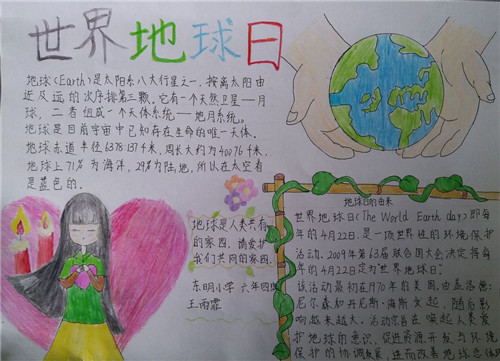 世界地球日
地球(Earth)是太阳系八大行星之一,按离太阳由
近及远的次序排第三颗。它有一个天然卫星—月
球,二者组成一个天体系统——地月系统。
地球是目前宇宙中已知存在生命的唯一天体。
地球赤道半径6378.137千米,周长大约为40076千米,
地球上71%为海洋,29%为陆地,所以在太空看
是蓝色的。
地球是人类共有
的家园,请爱护
我们共同的家园。
东明小学 六年四班
王雨霏
地球日的由来
世界地球日(The World Earth day)即每
年的4月22日,是一项世界性的环境保护
活动。2009年第63届联合国大会决议将每
年的4月22日定为世界地球日。
该活动最初在1970年的美国由盖洛德·
尼尔森和丹尼斯·海斯发起,随后影
响越来越大。活动宗旨在唤起人类爱
护地球的意识,促进资源开发与环境
保护的协调发展,进而改善地球